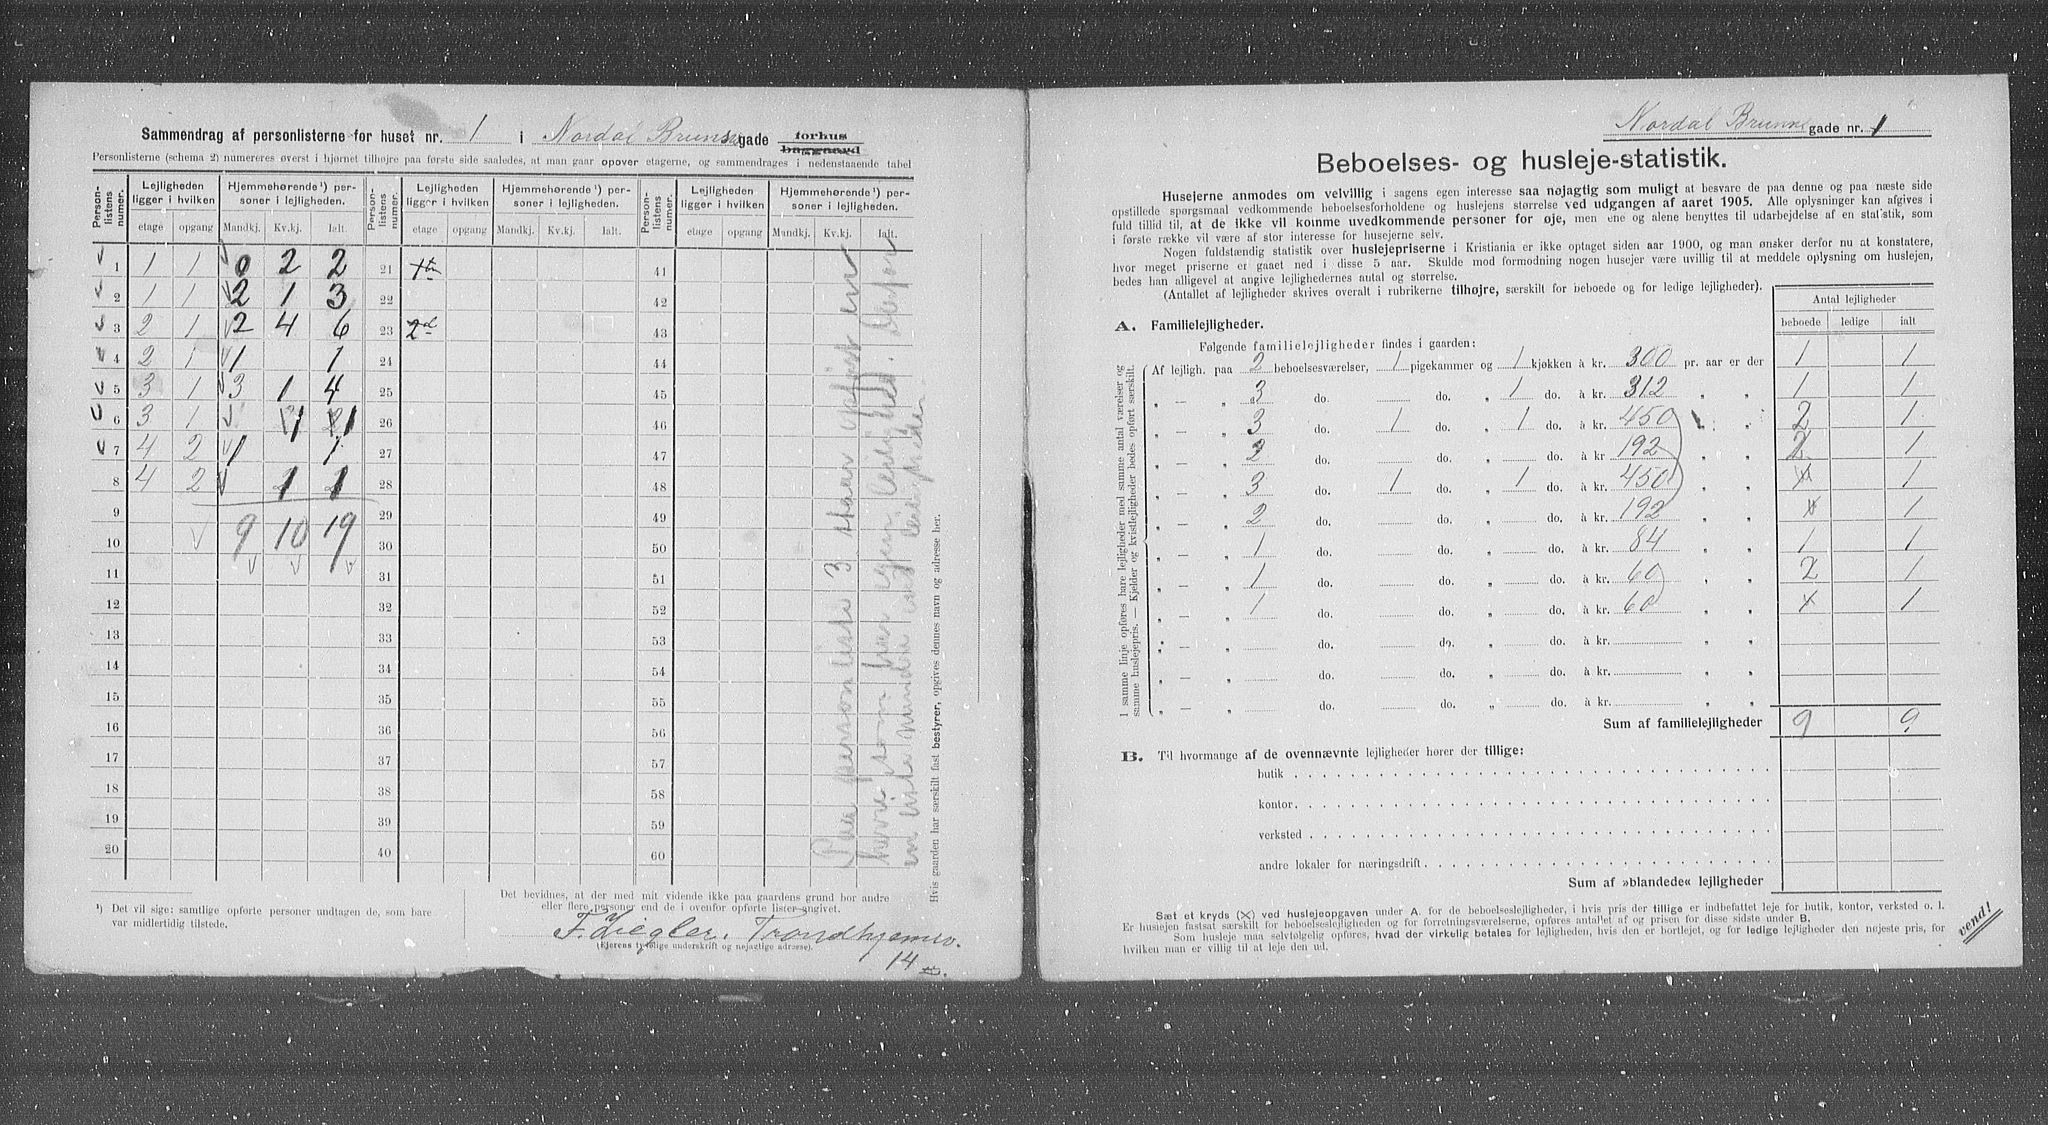 Sammendrag af personlisterne for huset nr. 1 i Nordal Brunsgade forhus
baggaard
Personlisterne (schema 2) numereres øverst i hjørnet tilhøjre paa første side saaledes, at man gaar opover etagerne, og sammendrages i nedenstaaende tabel
Person-listens numer. | Lejligheden ligger i hvilken | Hjemmehørende¹) personer i lejligheden. | Person-listens numer. | Lejligheden ligger i hvilken | Hjemmehørende¹) personer i lejligheden. | Person-listens numer. | Lejligheden ligger i hvilken | Hjemmehørende¹) personer i lejligheden.
etage | opgang | Mandkj. | Kv.kj. | Ialt. | etage | opgang | Mandkj. | Kv.kj. | Ialt. | etage | opgang | Mandkj. | Kv.kj. | Ialt.
1 | 1 | 1 | 0 | 2 | 2 | 21 | 1ste | 41
2 | 1 | 1 | 2 | 1 | 3 | 22 | 42
3 | 2 | 1 | 2 | 4 | 6 | 23 | 2d | 43
4 | 2 | 1 | 1 | 1 | 24 | 44
5 | 3 | 1 | 3 | 1 | 4 | 25 | 45
6 | 3 | 1 | 1 | 1 | 26 | 46
7 | 4 | 2 | 1 | 1 | 27 | 47
8 | 4 | 2 | 1 | 1 | 28 | 48
9 | 29 | 49
9 10 19
10 | 30 | 50
11 | 31 | 51
12 | 32 | 52
13 | 33 | 53
14 | 34 | 54
15 | 35 | 55
16 | 36 | 56
17 | 37 | 57
18 | 38 | 58
19 | 39 | 59
20 | 40 | 60
Paa personliste 3 staar opført en
som har egen lejlighed. Derfor
en liste mindre
Hvis gaarden har særskilt fast bestyrer, opgives dennes navn og adresse her.
¹) Det vil sige: samtlige opførte personer undtagen de, som bare
var midlertidig tilstede.
Det bevidnes, at der med mit vidende ikke paa gaardens grund bor andre
eller flere personer end de i ovenfor opførte lister angivet.
F. Ziegler. Trondhjemsv.
(Ejerens tydelige underskrift og nøjagtige adresse).
14
Nordal Bruns gade nr. 1
Beboelses- og husleje-statistik.
Husejerne anmodes om velvillig i sagens egen interesse saa nøjagtig som muligt at besvare de paa denne og paa næste side
opstillede spørgsmaal vedkommende beboelsesforholdene og huslejens størrelse ved udgangen af aaret 1905. Alle oplysninger kan afgives i
fuld tillid til, at de ikke vil komme uvedkommende personer for øje, men ene og alene benyttes til udarbejdelse af en statistik, som
i første række vil være af stor interesse for husejerne selv.
Nogen fuldstændig statistik over huslejepriserne i Kristiania er ikke optaget siden aar 1900, og man ønsker derfor nu at konstatere,
hvor meget priserne er gaaet ned i disse 5 aar. Skulde mod formodning nogen husejer være uvillig til at meddele oplysning om huslejen,
bedes han alligevel at angive lejlighedernes antal og størrelse.
(Antallet af lejligheder skrives overalt i rubrikerne tilhøjre, særskilt for beboede og for ledige lejligheder).
Antal lejligheder
beboede | ledige | ialt
A. Familielejligheder.
Følgende familielejligheder findes i gaarden:
I samme linje opføres bare lejligheder med samme antal værelser og
samme huslejepris. — Kjelder og kvistlejligheder bedes opført særskilt.
Af lejligh. paa 2 beboelsesværelser, 1 pigekammer og 1 kjøkken à kr. 300 pr. aar er der 1 | 1
„ — „ 3 do. do. „ 1 do. à kr. 312 „ „ 1 | 1
„ — „ 3 do. 1 do. „ 1 do. à kr. 450 „ „ 2 | 1
„ — „ 2 do. do. „ do. à kr 192 „ „ 2 | 1
„ — „ 3 do. 1 do. „ 1 do. à kr. 450 „ „ 1 | 1
„ — „ 2 do. do. „ do. à kr. 192 „ „ 1 | 1
„ — „ 1 do. do. „ do. à kr. 84 „ „ 1 | 1
„ — „ 1 do. do. „ do. à kr. 60 „ „ 2 | 1
„ — „ 1 do. do. „ do. à kr. 60 „ „ 1 | 1
„ — „ do. do. „ do. à kr. „ „
„ — „ do. do. „ do. à kr. „ „
„ — „ do. do. „ do. à kr. „ „
Sum af familielejligheder 9 | 9
B. Til hvormange af de ovennævnte lejligheder hører der tillige:
butik
kontor
verksted
andre lokaler for næringsdrift
Sum af »blandede« lejligheder
Sæt et kryds (×) ved huslejeopgaven under A. for de beboelseslejligheder, i hvis pris der tillige er indbefattet leje for butik, kontor, verksted o. l.
Er huslejen fastsat særskilt for beboelseslejligheden og for forretningsværelserne, opføres antallet af og prisen for disse sidste under B.
Som husleje maa selvfølgelig opføres, hvad der virkelig betales for lejligheden, hvis den er bortlejet, og for ledige lejligheder den nøjeste pris, for
hvilken man er villig til at leje den ud.
vend!